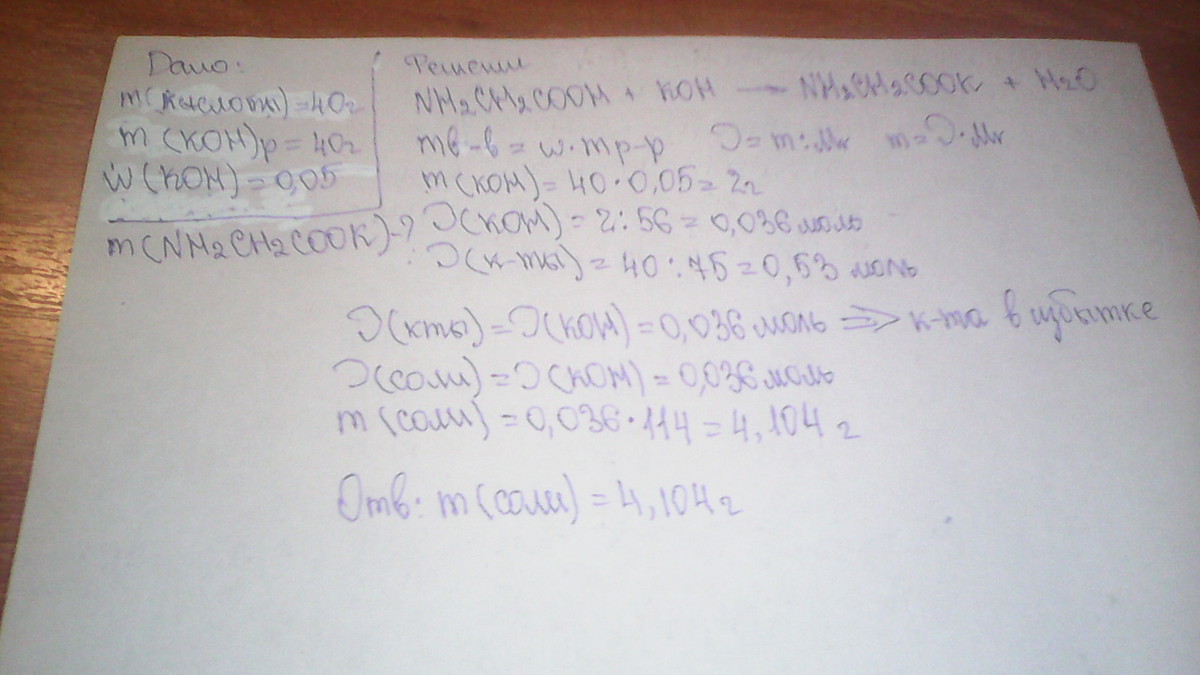 Дано:
m(кислоты)=40г
m(KOH)р=40г
W(KOH)=0,05
m(NH2CH2COOK)-?
Решение
NH2CH2COOH + KOH → NH2CH2COOK + H2O
mв-в = w·mр-р ϑ=m:Mr m=ϑ·Mr
m(KOH)=40·0,05=2г
ϑ(KOH)=2:56=0,036моль
ϑ(к-ты)=40:75=0,53 моль
ϑ(кты)=ϑ(KOH)=0,036моль => к-та в избытке
ϑ(соли)=ϑ(KOH)=0,036моль
m(соли)=0,036·114=4,104г
Отв: m(соли)=4,104г